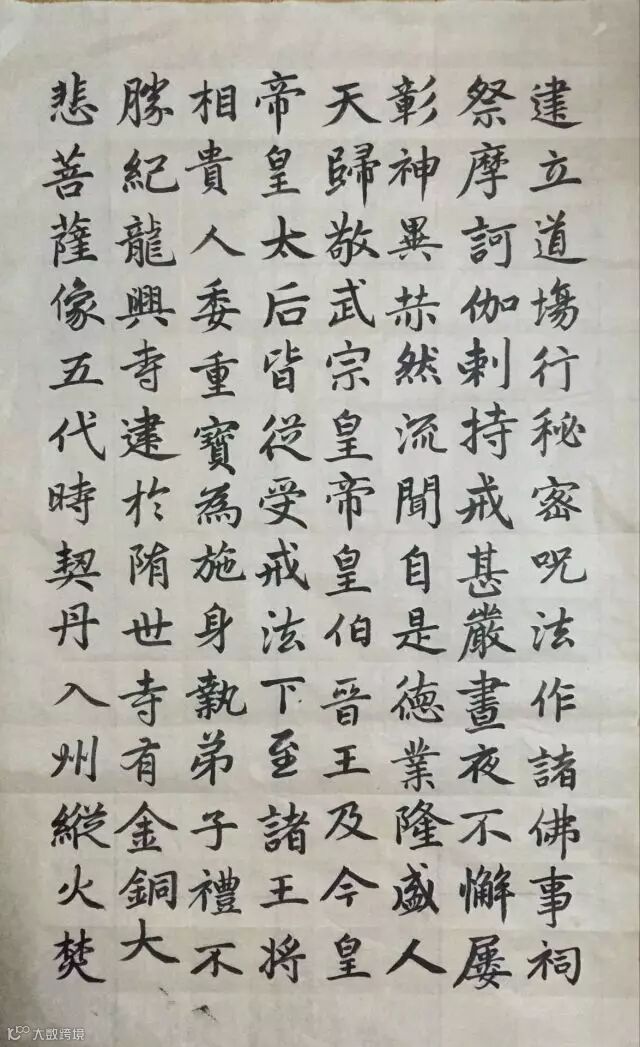 建立道場行秘密呪法作諸佛事祠
祭摩訶伽剌持戒甚嚴晝夜不懈屢
彰神異赫然流聞自是德業隆盛人
天歸敬武宗皇帝皇伯晉王及今皇
帝皇太后皆從受戒法下至諸王將
相貴人委重寶為施身執弟子禮不
勝紀龍興寺建於隋世寺有金銅大
悲菩薩像五代時契丹入州縱火焚
大数跨境